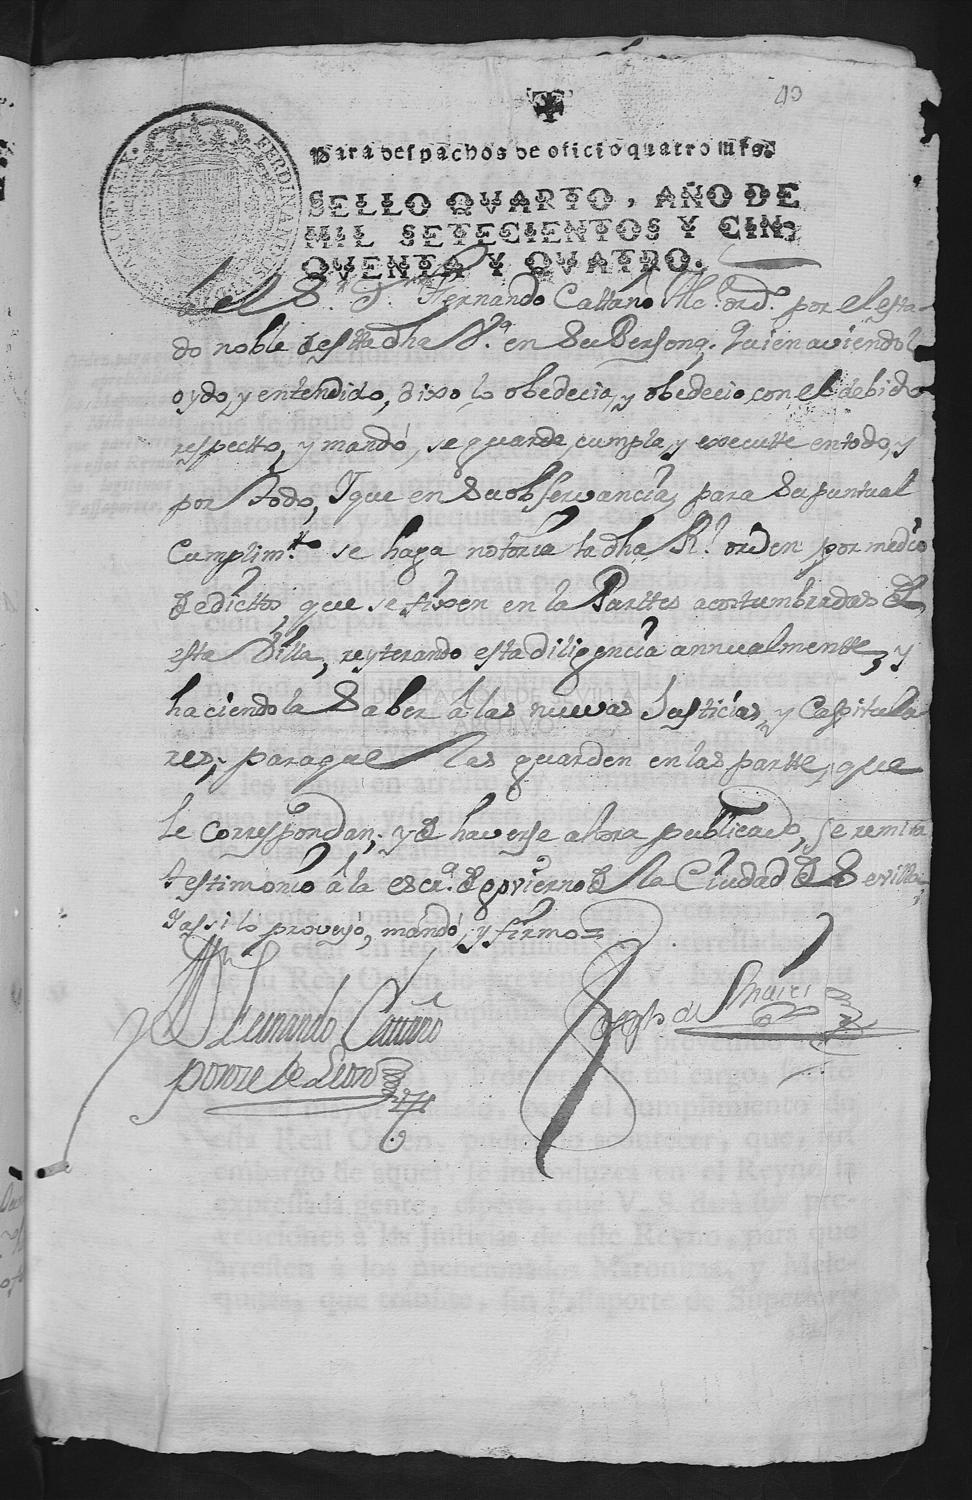 40
Para despachos de oficio quatro mrs.
SELLO QVARTO, AÑO DE
MIL SETECIENTOS Y CIN-
QVENTA Y QVATRO.
FERDINANDUS
REX
a el Sr. D. Fernando Cattaño Alc.e ord.o por el esta-
do noble de estta dha V.a en Su Persona. Quien aviendola
oydo, y entendido, dixo la obedecia, y obedecio con el debido
respectto, y mandó, se guarde, cumpla, y executte en todo, y
por Todo, Y que en Su observancia, para Su puntual
Cumplim.to se haga notoria la dha R.l orden por medio
de edicttos, que se fixen en la Parttes acostumbradas de
esta Villa, reyterando esta diligencia annualmentte, y
haciendola Saber â las nuevas Justicias, y Capitula
res, para que las guarden en las partte, que
le correspondan; y de haverse ahora publicado, se remita
testimonio â la escr.a de govierno de la Ciudad de Sevilla,
Y assi lo proveyó, mandó, y firmo=
Dn Fernando Cattaño
ponze de Leon
Joseph de